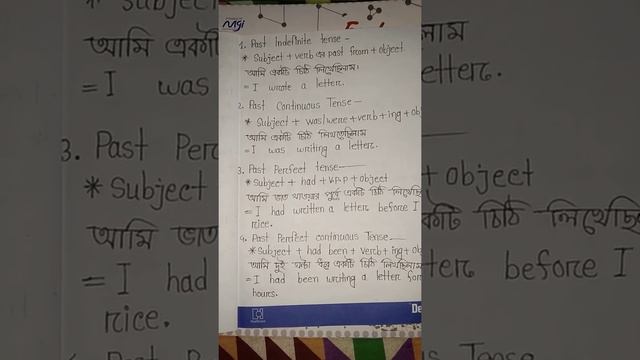 mgi
1. Past Indefinite tense -
* Subject + verb এর past from + object
আমি একটি চিঠি লিখেছিলাম।
= I wrote a letter.
2. Past Continuous Tense —
* Subject + was/were + verb + ing + ob
আমি একটি চিঠি লিখতেছিলাম
= I was writing a letter.
3. Past Perfect tense —
* Subject + had + v.p.p + object
আমি ভাত খাওয়ার পূর্বে একটি চিঠি লিখেছি
= I had written a letter before I
rice.
4. Past Perfect continuous Tense —
* Subject + had been + verb + ing + ob
আমি দুই ঘন্টা ধরে একটি চিঠি লিখতেছিলাম
= I had been writing a letter for
hours.
De